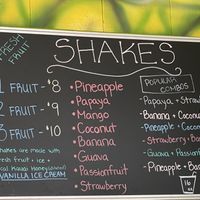 SHAKES
FRESH
FRUIT
1 FRUIT - $8
2 FRUIT - $9
3 FRUIT - $10
shakes are made with
fresh fruit + ice +
local Kauai Honey
VANILLA ICE CREAM
• Pineapple
• Papaya
• Mango
• Coconut
• Banana
• Guava
• Passionfruit
• Strawberry
POPULAR
COMBOS
Papaya + Stra
Banana + Coconu
Pineapple + Coco
Strawberry + Ba
Guava + Passion
Pineapple + Ba
16
oz